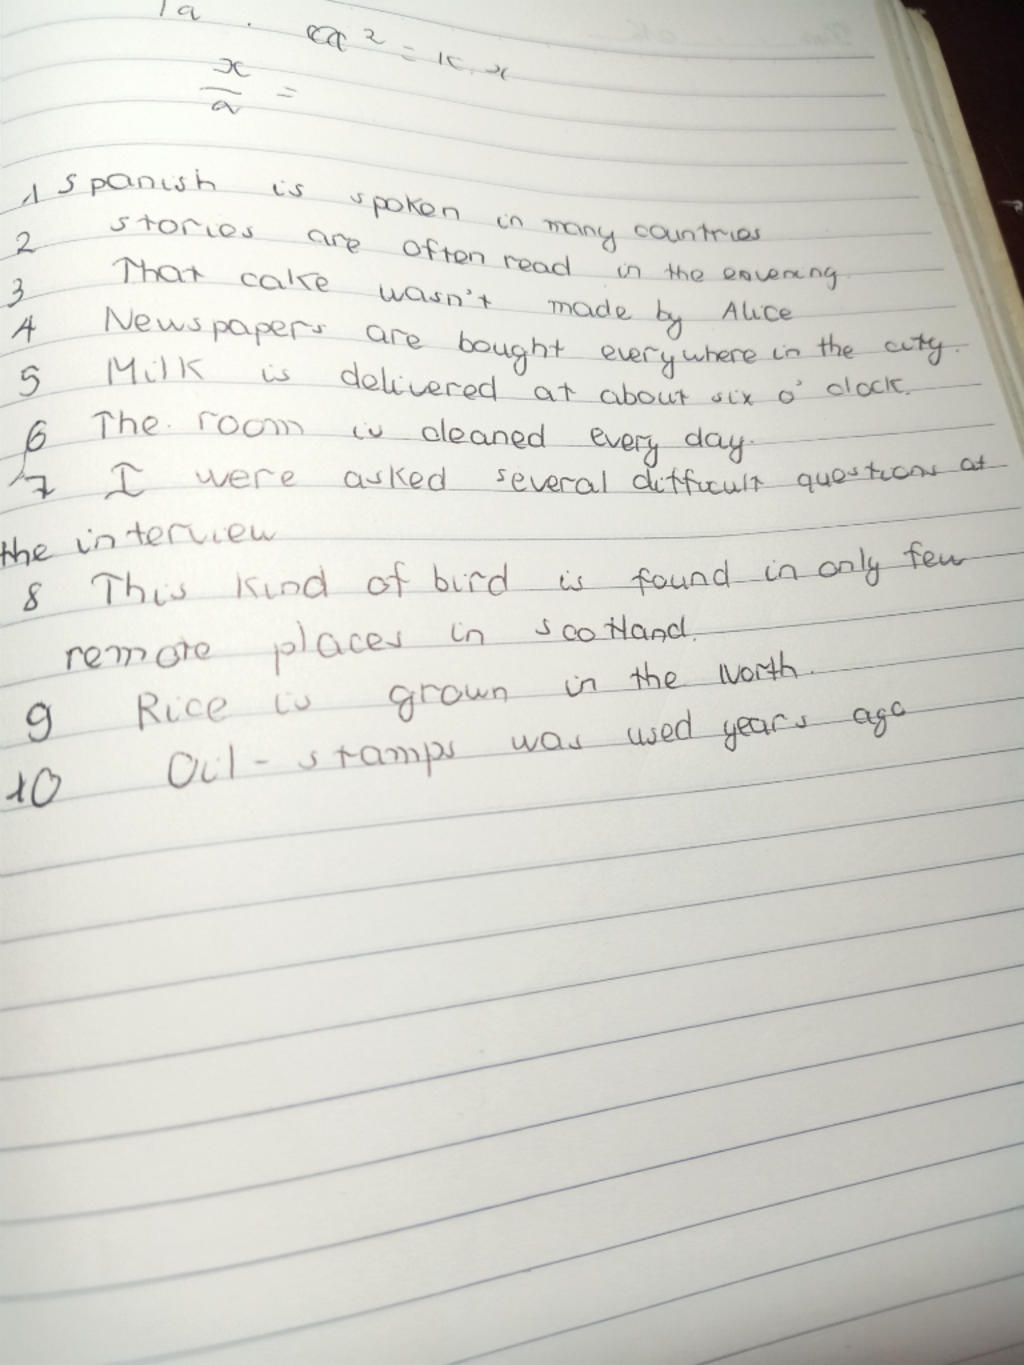 1a . a² = k.x
x/a =
1 Spanish is spoken in many countries
2 stories are often read in the eavening.
3 That cake wasn't made by Alice
4 Newspapers are bought everywhere in the city.
5 Milk is delivered at about six o' clock.
6 The room is cleaned every day.
7 I were asked several difficult questions at
the interview
8 This kind of bird is found in only few
remote places in Scotland.
9 Rice is grown in the North.
10 Oil - stamps was used years ago